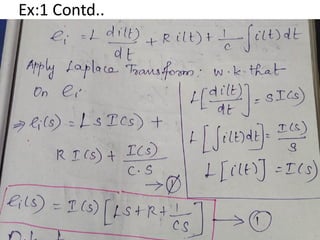 Ex:1 Contd..
ei = L di(t)/dt + R i(t) + 1/c ∫i(t)dt
Apply Laplace Transform: w.k.that
on ei
L[di(t)/dt] = SI(s)
⇒ ei(s) = LS I(s) +
R I(s) + I(s)/C.S
L[∫i(t)dt] = I(s)/S
L[i(t)] = I(s)
ei(s) = I(s)[LS+R+1/CS] → ①